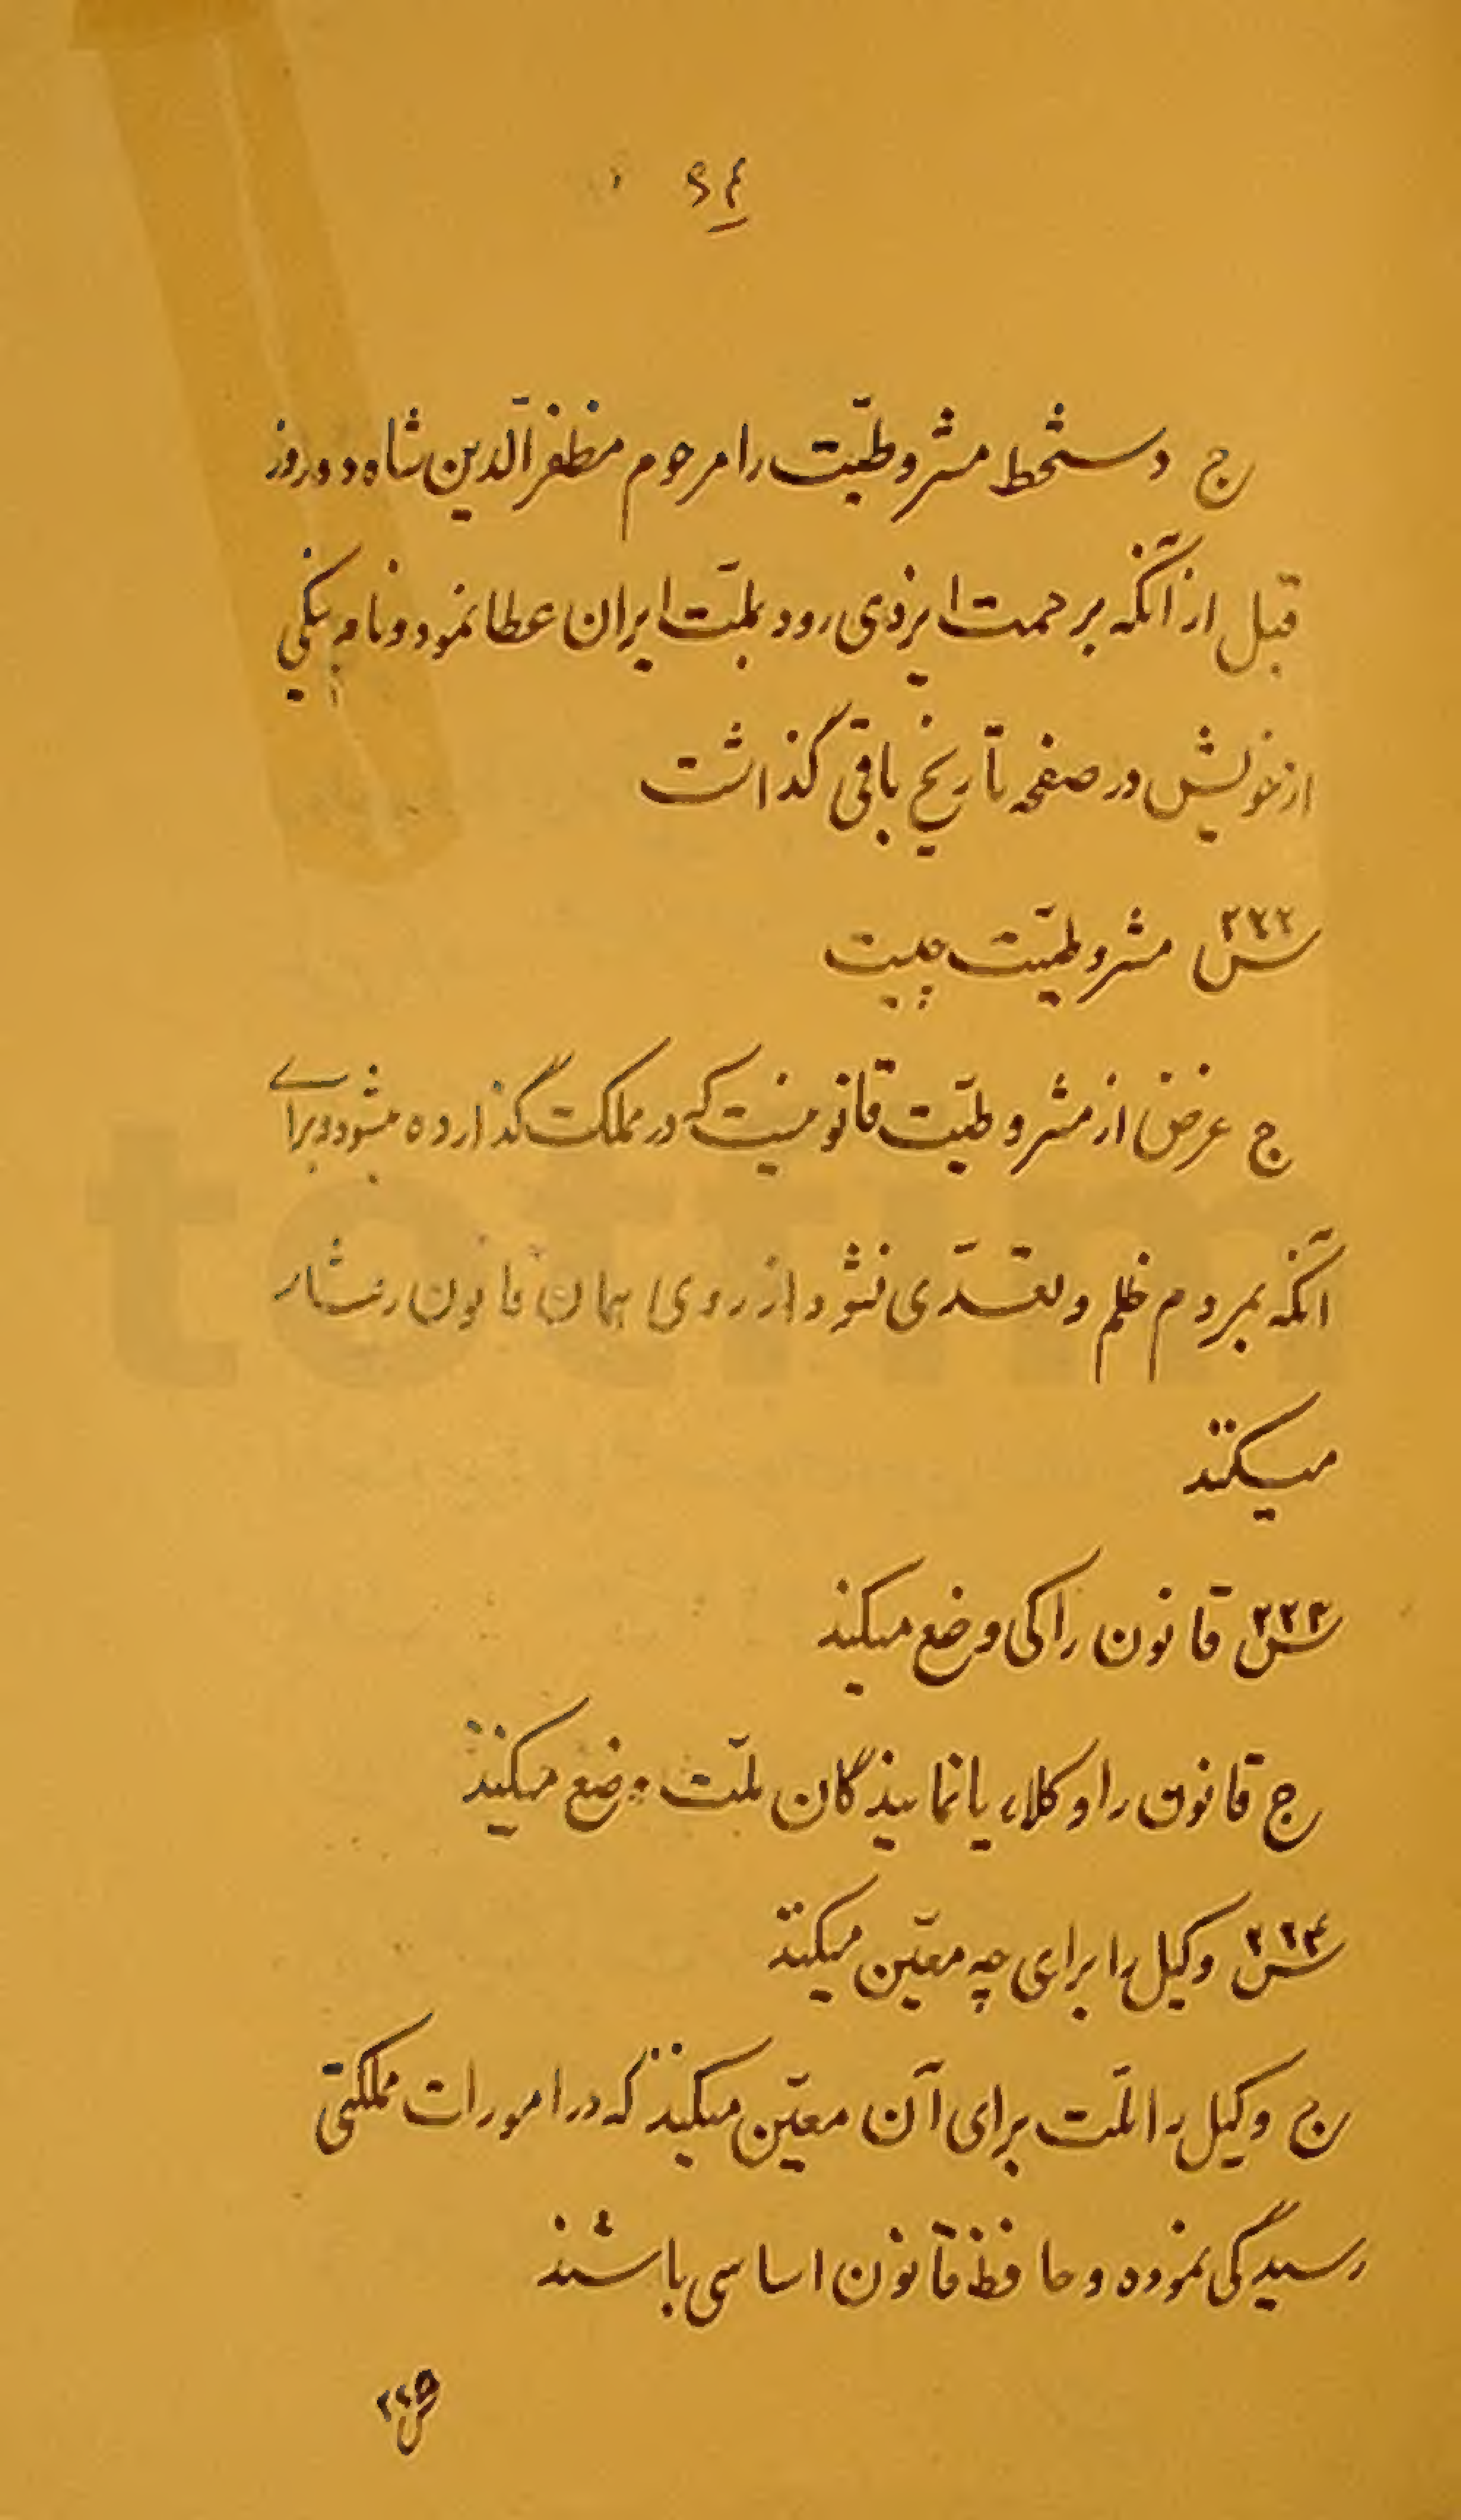 ۶۴
ج دستخط مشروطیّت را مرحوم مظفرالدّین شاه دو روز
قبل از آنکه برحمت ایزدی رود بملّت ایران عطا نمود و نام نیکی
از خویش در صفحه تاریخ باقی گذاشت
س۲۲۲ مشروطیّت چیست
ج غرض از مشروطیّت قانونیست که در مملکت گذارده میشود برای
آنکه بمردم ظلم و تعدّی نشود از روی همان قانون رفتار
میکنند
س۲۲۳ قانون را کی وضع میکند
ج قانون را وکلاء یا نمایندگان ملّت وضع میکنند
س۲۲۴ وکیل را برای چه معیّن میکنند
ج وکیل را ملّت برای آن معیّن میکنند که در امورات مملکتی
رسیدگی نموده و حافظ قانون اساسی باشند
س۲۲۵
totfim